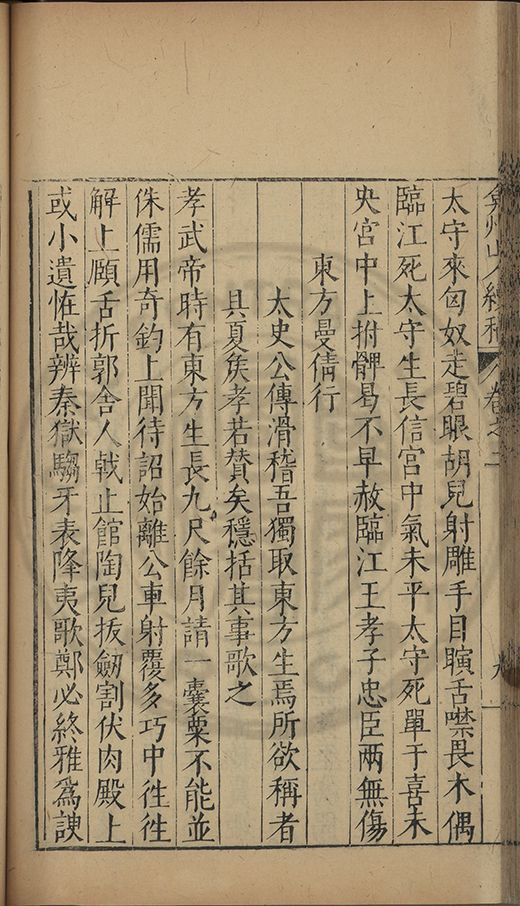 弇州山人續稿 卷之二 九
太守來匈奴走碧眼胡兒射雕手目瞚舌噤畏木偶
臨江死太守生長信宮中氣未平太守死單于喜未
央宮中上拊髀曷不早赦臨江王孝子忠臣兩無傷
東方曼倩行
太史公傳滑稽吾獨取東方生焉所欲稱者
具夏矦孝若贊矣穩括其事歌之
孝武帝時有東方生長九尺餘月請一囊粟不能並
侏儒用奇鈞上聞待詔始離公車射覆多巧中徃徃
解上頤舌折郭舍人戟止館陶兒拔劒割伏肉殿上
或小遺恠哉辨秦獄騶牙表降夷歌鄭必終雅為諛